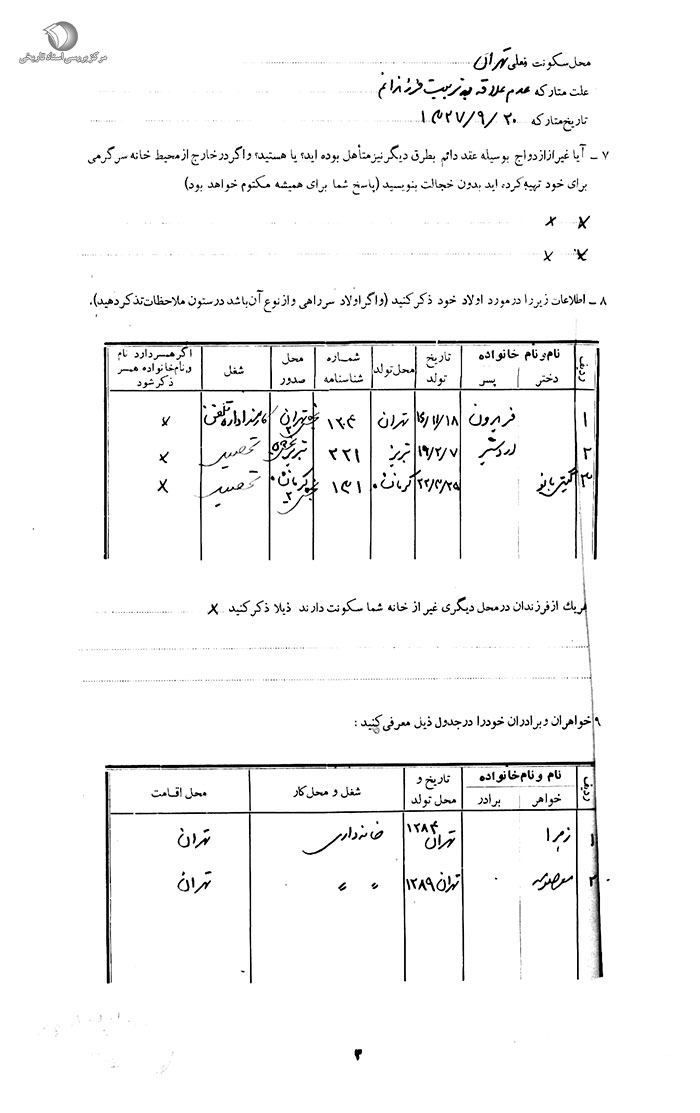 مرکز بررسی اسناد تاریخی
محل سکونت فعلی تهران
علت متارکه عدم علاقه به تربیت فرزندانم
تاریخ متارکه ۱۳۲۷/۹/۲۰
۷ ـ آیا غیر از ازدواج بوسیله عقد دائم بطرق دیگر نیز متأهل بوده اید؟ یا هستید؟ واگر در خارج از محیط خانه سرگرمی
برای خود تهیه کرده اید بدون خجالت بنویسید (پاسخ شما برای همیشه مکتوم خواهد بود)
x x
x x
۸ ـ اطلاعات زیر را در مورد اولاد خود ذکر کنید (واگر اولاد سرراهی واز نوع آن باشد درستون ملاحظات تذکر دهید).
ردیف نام و نام خانواده دختر پسر تاریخ تولد محل تولد شماره شناسنامه محل صدور شغل اگر همسر دارد نام ونام خانواده همسر ذکر شود
۱ فریدون ۱۶/۱۱/۱۸ تهران ۱۳۰۴ تهران کارمند اداره تلفن x
۲ اردشیر ۱۹/۲/۷ تبریز ۲۲۱ تبریز تحصیل x
۳ گیتی بانو ۲۲/۳/۲۵ کرمانشاه ۱۳۱ کرمانشاه تحصیل x
هریك از فرزندان در محل دیگری غیر از خانه شما سکونت دارند ذیلا ذکر کنید x
۹ خواهران وبرادران خودرا درجدول ذیل معرفی کنید :
ردیف نام ونام خانواده خواهر برادر تاریخ و محل تولد شغل و محل کار محل اقامت
۱ زهرا ۱۲۸۴ تهران خانه داری تهران
۲ معصومه تهران ۱۲۸۹ " " تهران
۳